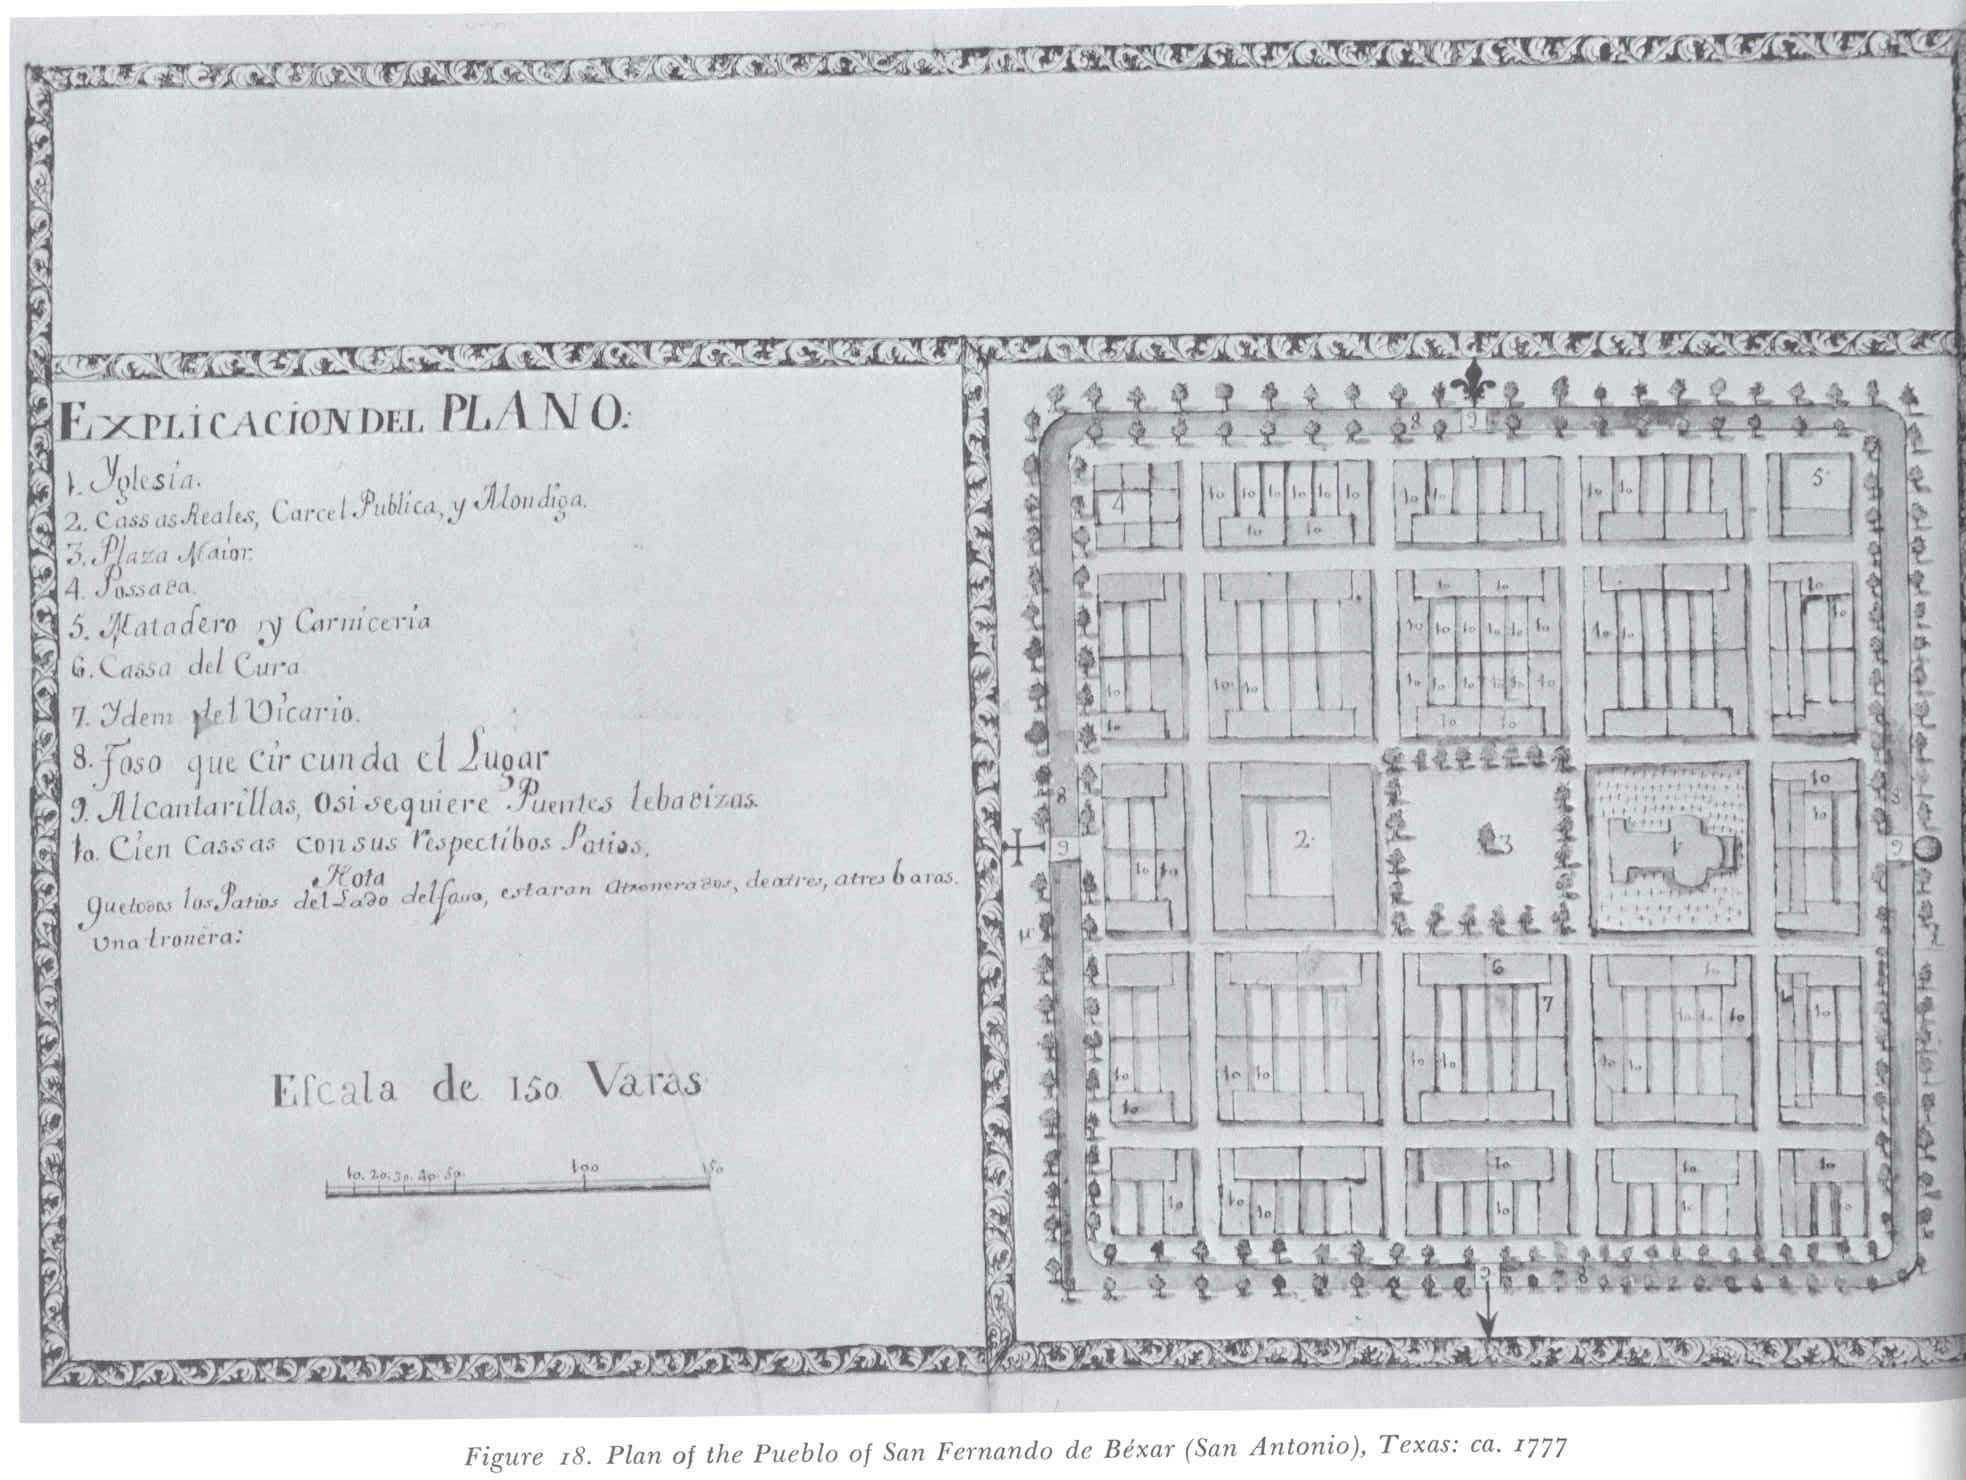 EXPLICACION DEL PLANO:
1. Yglesia.
2. Cassas Reales, Carcel Publica, y Alondiga.
3. Plaza Maior.
4. Possada.
5. Matadero y Carniceria
6. Cassa del Cura
7. Ydem del Vicario.
8. Foso que circunda el Lugar
9. Alcantarillas, O si se quiere Puentes lebadizas.
10. Cien Cassas con sus respectibos Patios.
Nota
que todos los Patios del Lado del foso, estaran atronerados, de a tres, a tres baras.
Una tronera:
Escala de 150 Varas
10. 20. 30. 40. 50. 100 150
8 9
4 10 10 10 10 10 10 10 10 10 10 5
10 10
10 10 10
10 10 10 10 10 10 10 10 10
10 10 10 10 10 10 10 10 10
10 10 10
8 10
9 10 10 2. 3 1 10 9
6 10
7 10 10 10 10
10 10 10 10 10 10 10
10
10 10 10
10 10 10 10 10
9 8
Figure 18. Plan of the Pueblo of San Fernando de Béxar (San Antonio), Texas: ca. 1777